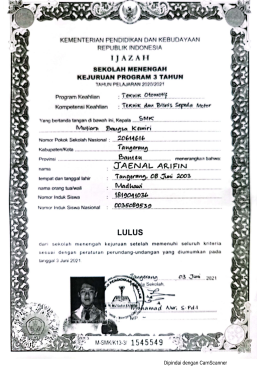 KEMENTERIAN PENDIDIKAN DAN KEBUDAYAAN
REPUBLIK INDONESIA
IJAZAH
SEKOLAH MENENGAH
KEJURUAN PROGRAM 3 TAHUN
TAHUN PELAJARAN 2020/2021
Program Keahlian : Teknik Otomotif
Kompetensi Keahlian : Teknik dan Bisnis Sepeda Motor
Yang bertanda tangan di bawah ini, Kepala SMK
Mutiara Bangsa Kemiri
Nomor Pokok Sekolah Nasional : 20614616
Kabupaten/Kota : Tangerang
Provinsi : Banten menerangkan bahwa:
nama : JAENAL ARIFIN
tempat dan tanggal lahir : Tangerang, 08 Juni 2003
nama orang tua/wali : Madhawi
Nomor Induk Siswa
Nomor Induk Siswa Nasional
LULUS
dari sekolah menengah kejuruan setelah memenuhi seluruh kriteria
sesuai dengan peraturan perundang-undangan yang diumumkan pada
tanggal 3 Juni 2021
Tangerang 03 Juni 2021
Sekolah,
M-SMK/K13-3/ 1545549
Dipindai dengan CamScanner